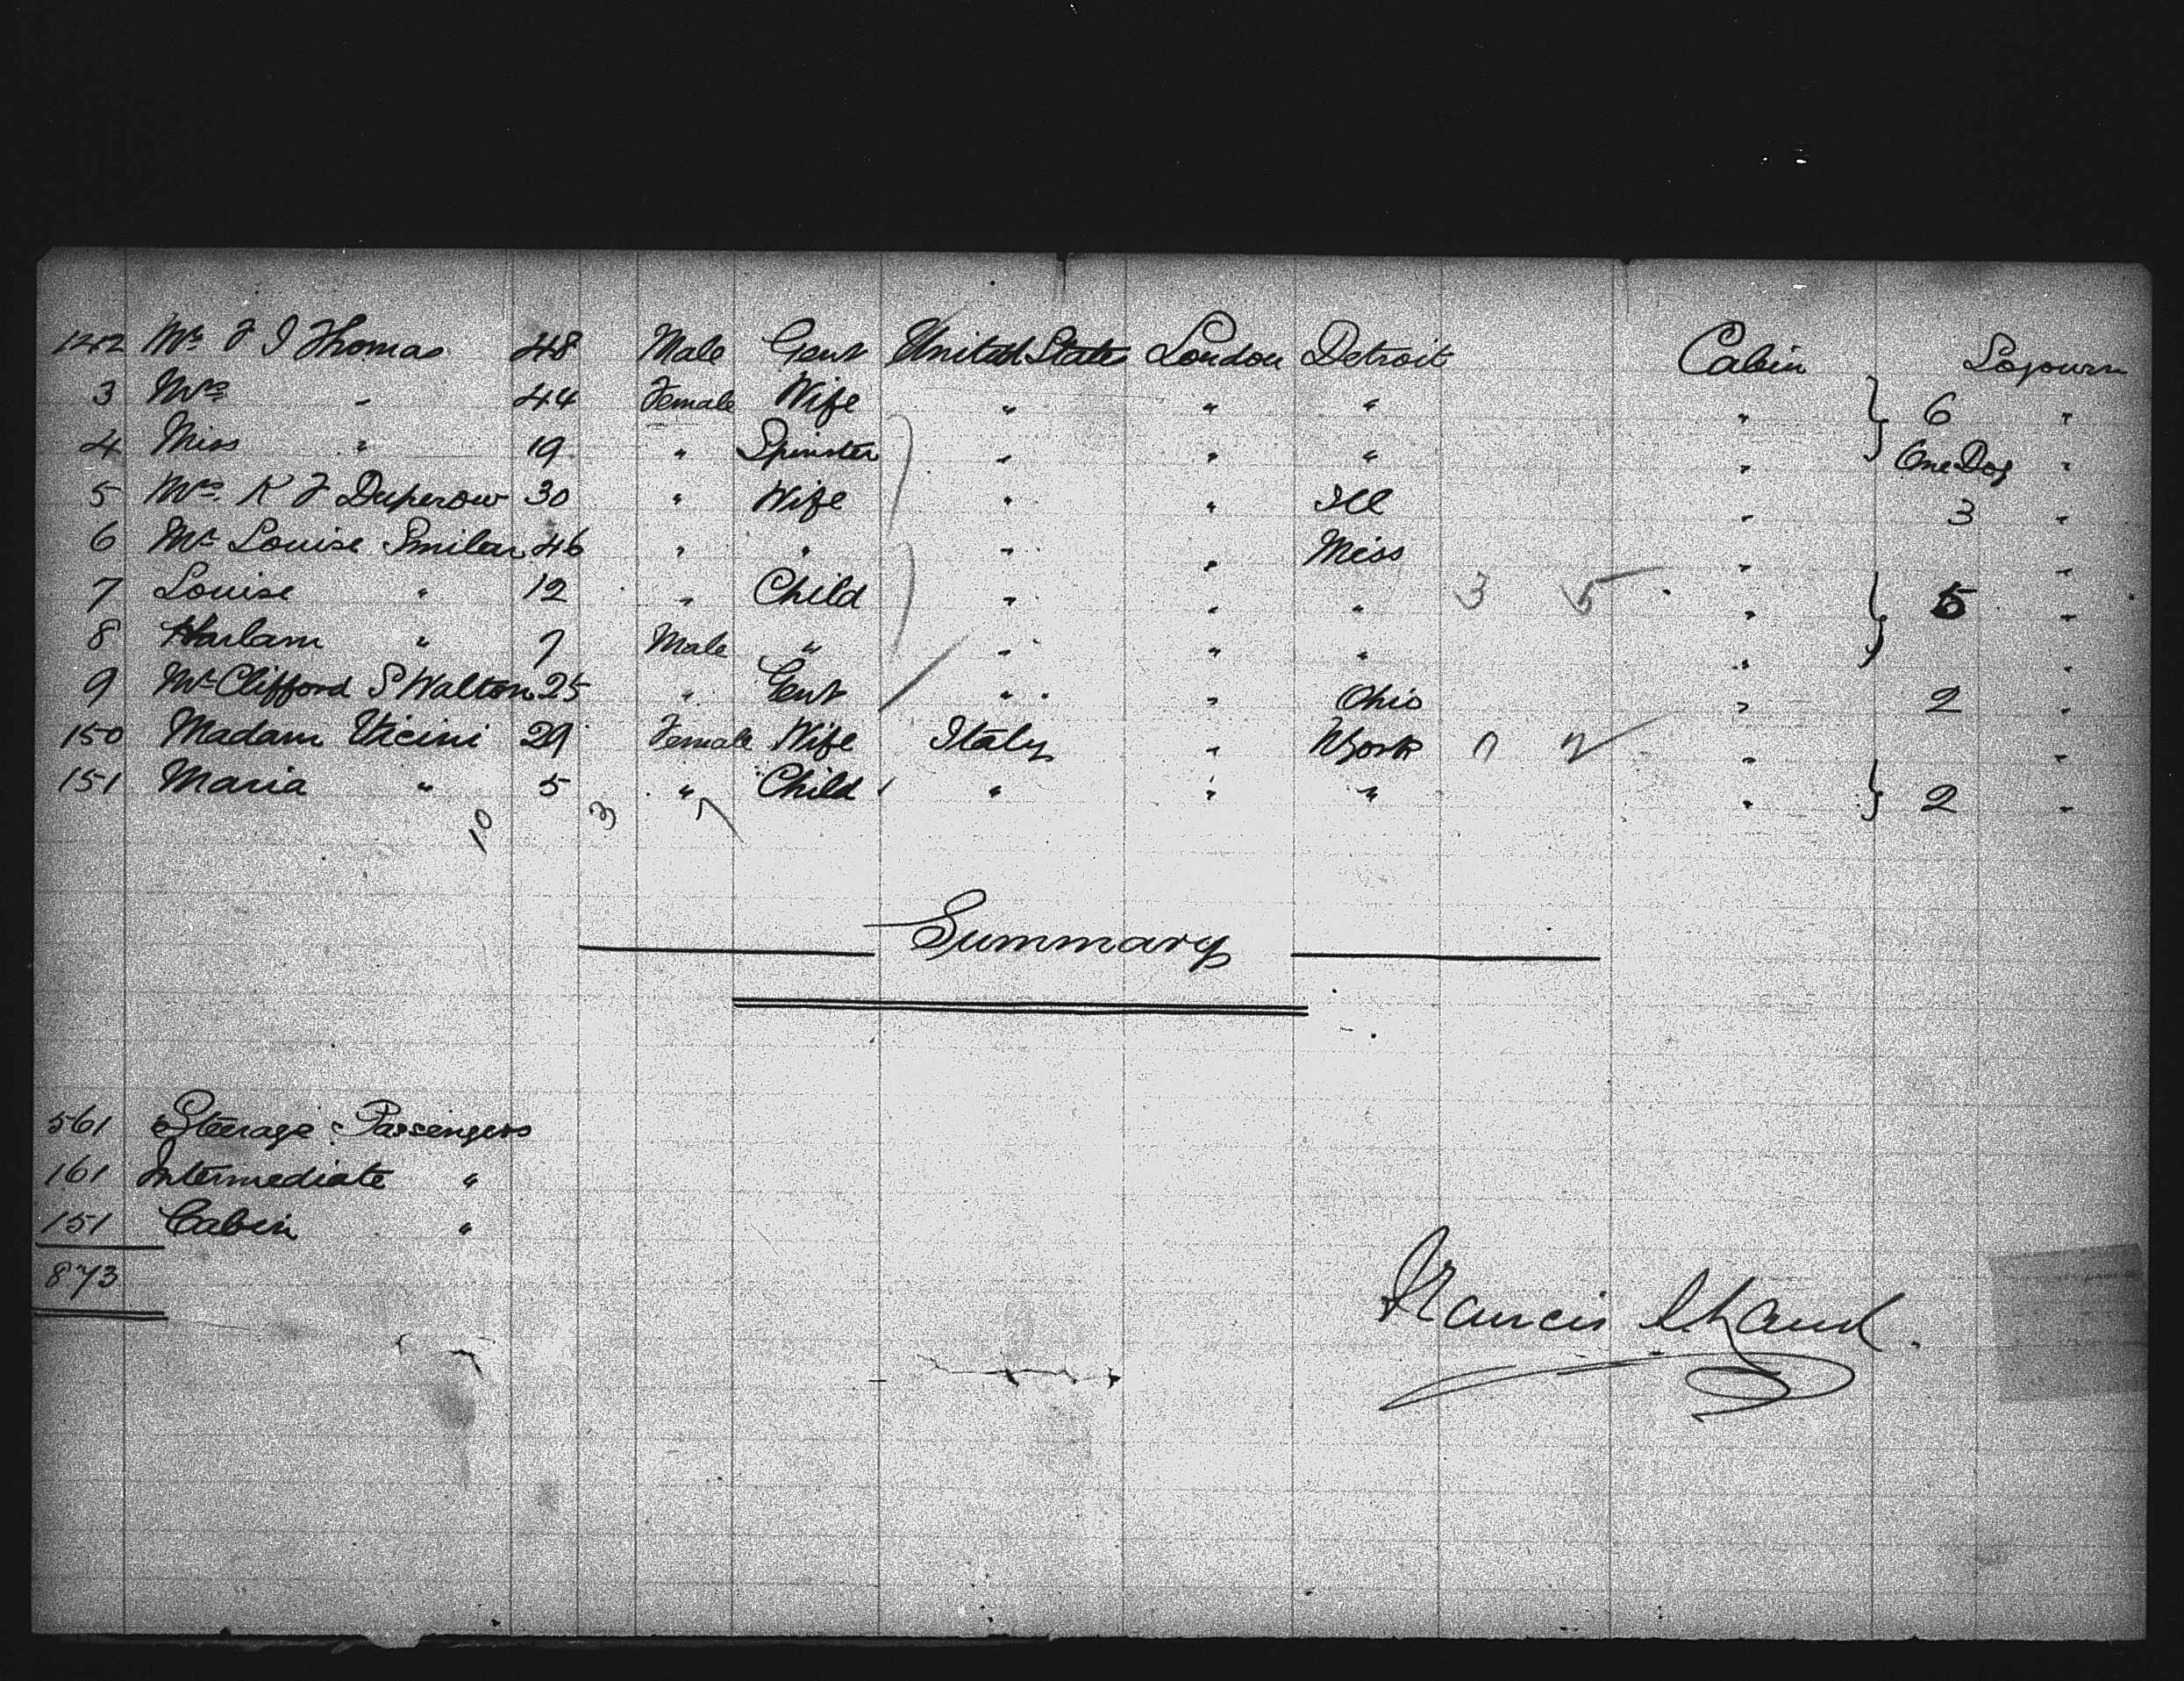 142 Mr F I Thomas 48 Male Gent United States London Detroit Cabin Sojourn
3 Mrs " 44 Female Wife " " " " 6 "
4 Miss " 19 " Spinster " " " " One Dog "
5 Mrs. K F Duperow 30 " Wife " " Ill " 3 "
6 Mrs Louise Smilar 46 " " " " Miss " "
7 Louise " 12 " Child " " " 3 5 " 5 "
8 Harlam " 7 Male " " " " " "
9 Mr Clifford S Walton 25 " Gent " " Ohio " 2 "
150 Madam Vicini 29 Female Wife Italy " NYork 0 2 " "
151 Maria " 5 " Child " " " " 2 "
10 3 7
Summary
561 Steerage Passengers
161 Intermediate "
151 Cabin "
873
Francis